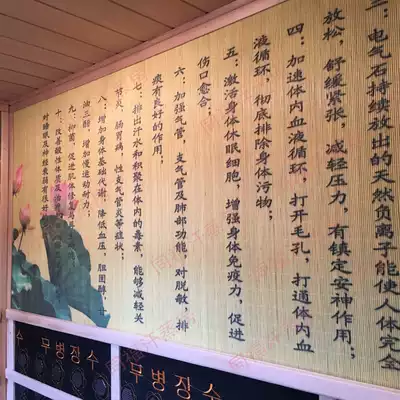 三：电气石持续放出的天然负离子能使人体完全
放松，舒缓紧张，减轻压力，有镇定安神作用；
四：加速体内血液循环，打开毛孔，打通体内血
液循环，彻底排除身体污物；
五：激活身体休眠细胞，增强身体免疫力，促进
伤口愈合
六：加强气管，支气管及肺部功能，对脱敏，排
痰有良好的作用；
七：排出汗水和积聚在体内的毒素，能够减轻关
节炎、肠胃病，性支气管炎等症状；
八：增加身体基础代谢，降低血压，胆固醇，甘
油三脂，增加慢运动耐力；
九：抑菌，促进肌体修复
十：改善酸性体质及治
对睡眠及神经衰弱有很好
수 무병장수 무병장수